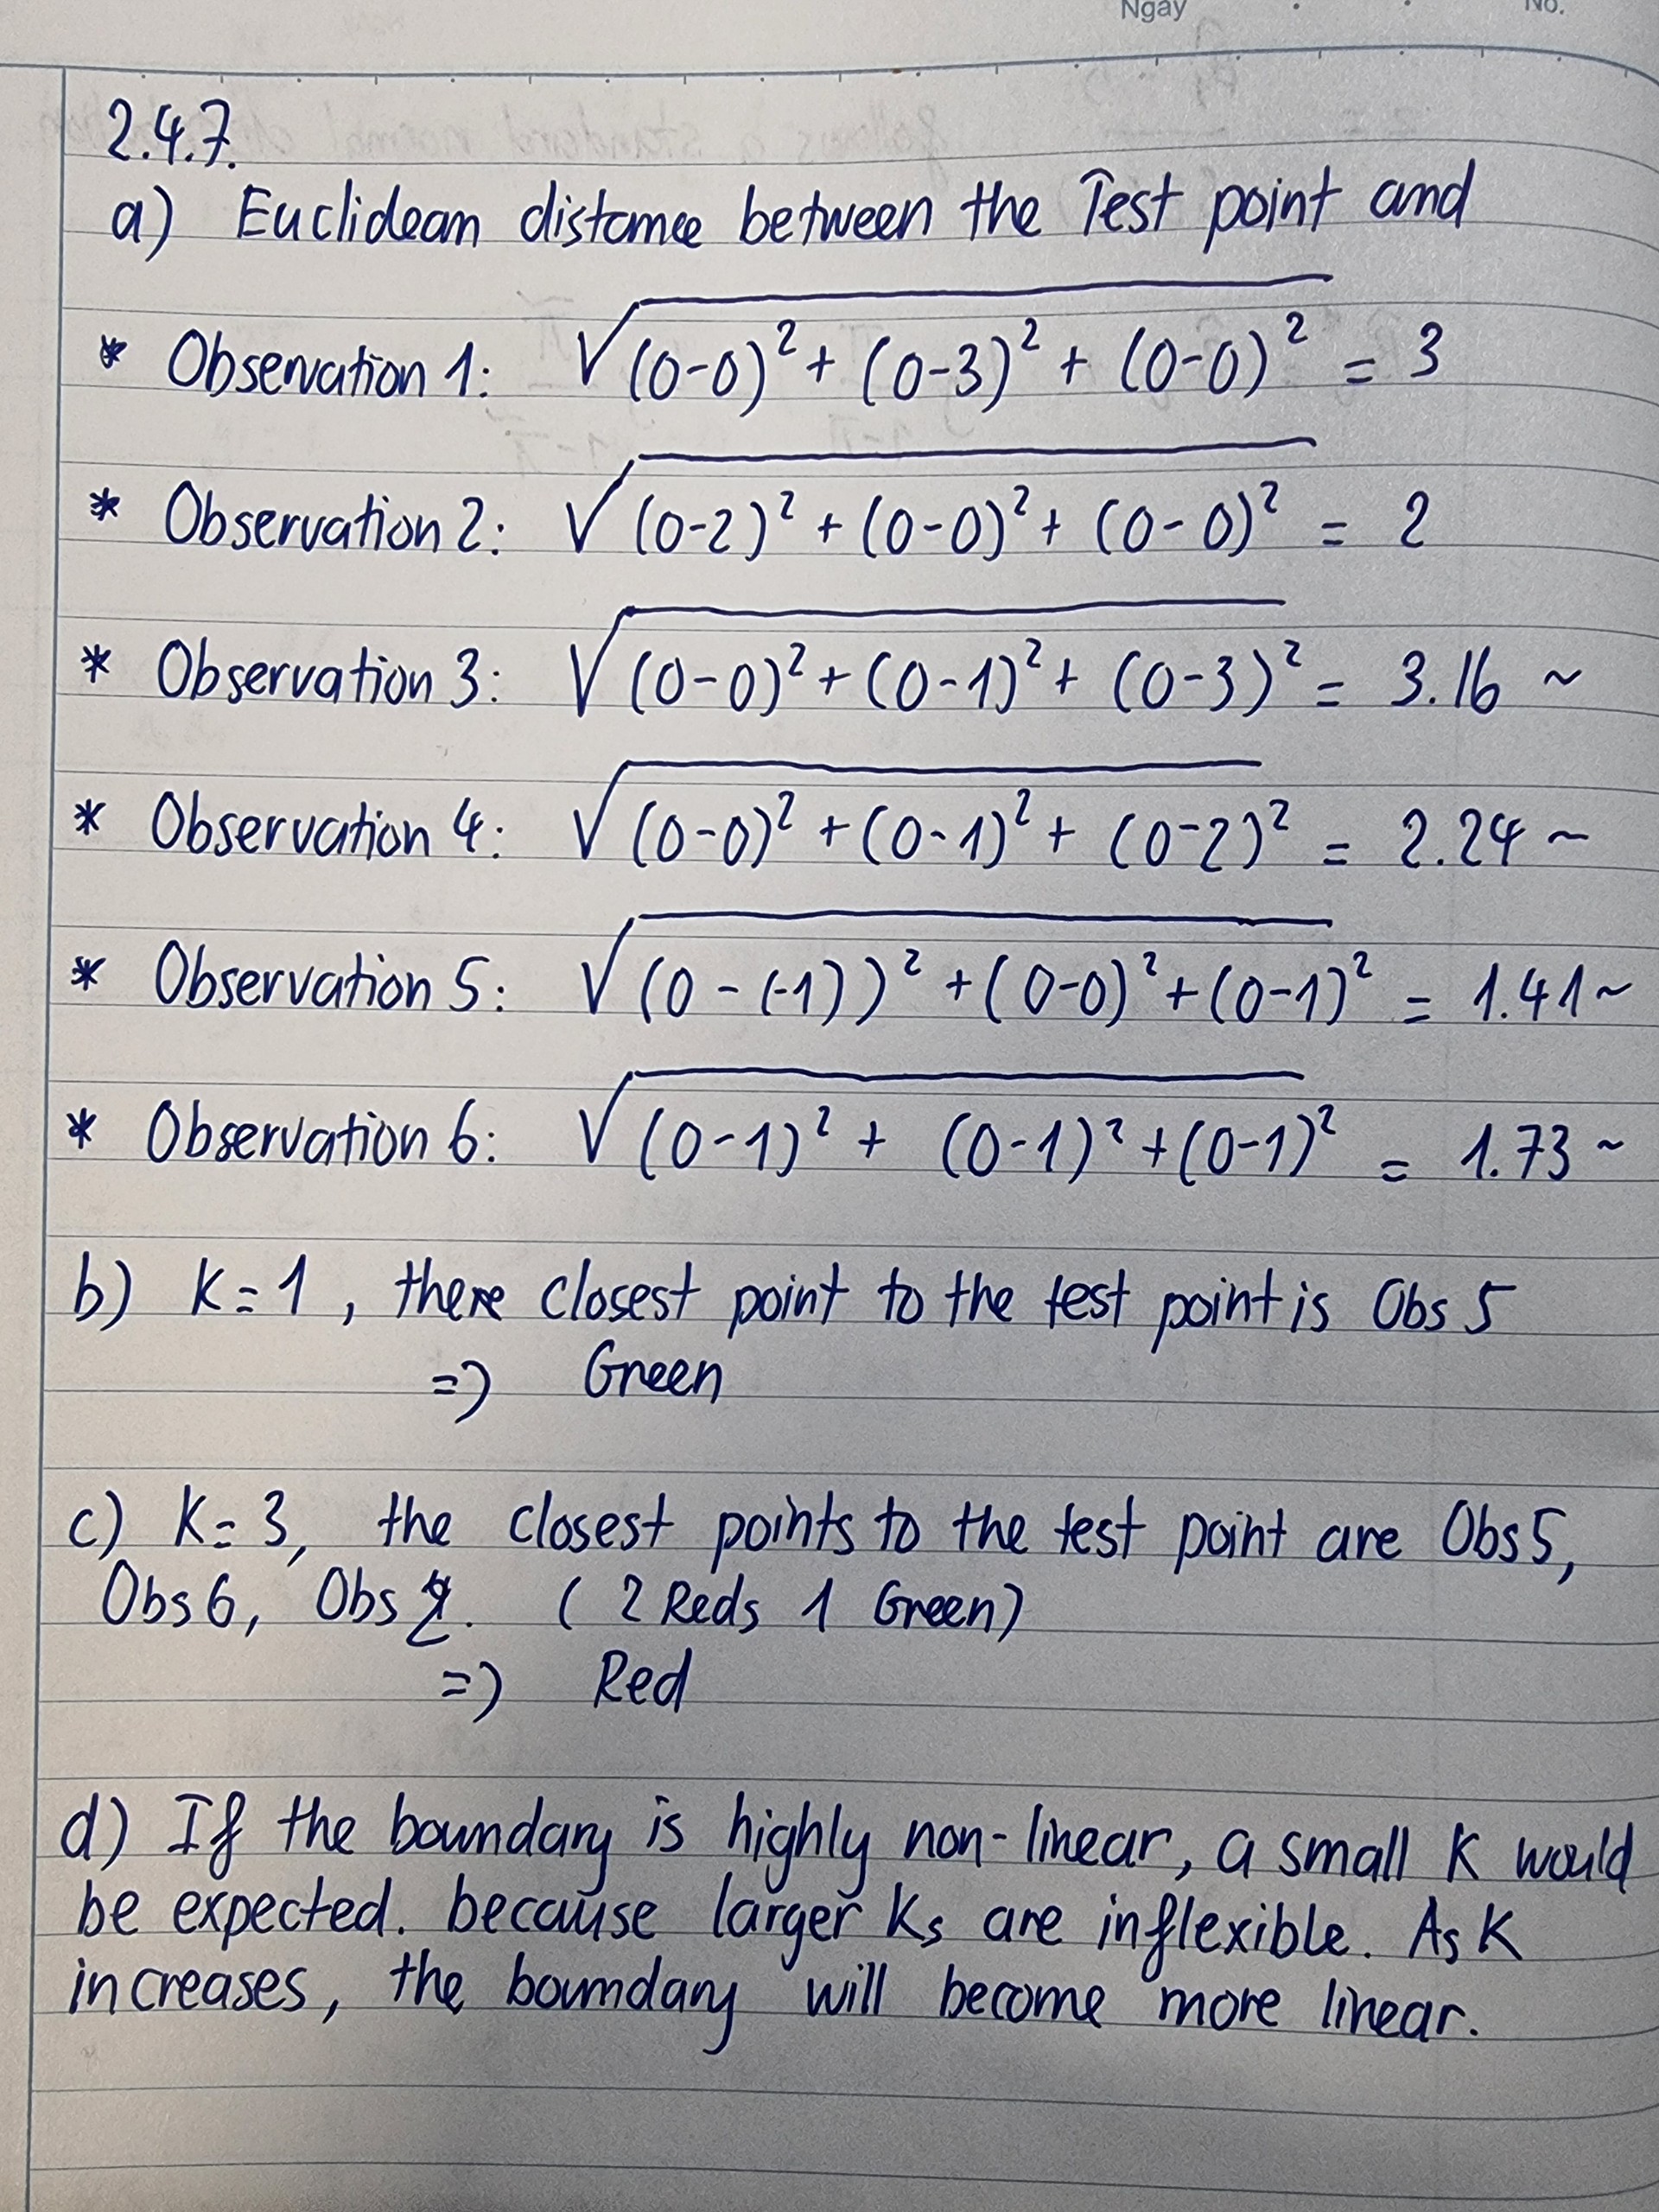 Ngày No.
2.4.7.
a) Euclidean distance between the Test point and
* Observation 1: √((0-0)² + (0-3)² + (0-0)²) = 3
* Observation 2: √((0-2)² + (0-0)² + (0-0)²) = 2
* Observation 3: √((0-0)² + (0-1)² + (0-3)²) = 3.16 ~
* Observation 4: √((0-0)² + (0-1)² + (0-2)²) = 2.24 ~
* Observation 5: √((0-(-1))² + (0-0)² + (0-1)²) = 1.41 ~
* Observation 6: √((0-1)² + (0-1)² + (0-1)²) = 1.73 ~
b) K=1, there closest point to the test point is Obs 5
=> Green
c) K=3, the closest points to the test point are Obs 5,
Obs 6, Obs 2. (2 Reds 1 Green)
=> Red
d) If the boundary is highly non-linear, a small K would
be expected. because larger Ks are inflexible. As K
increases, the boundary will become more linear.